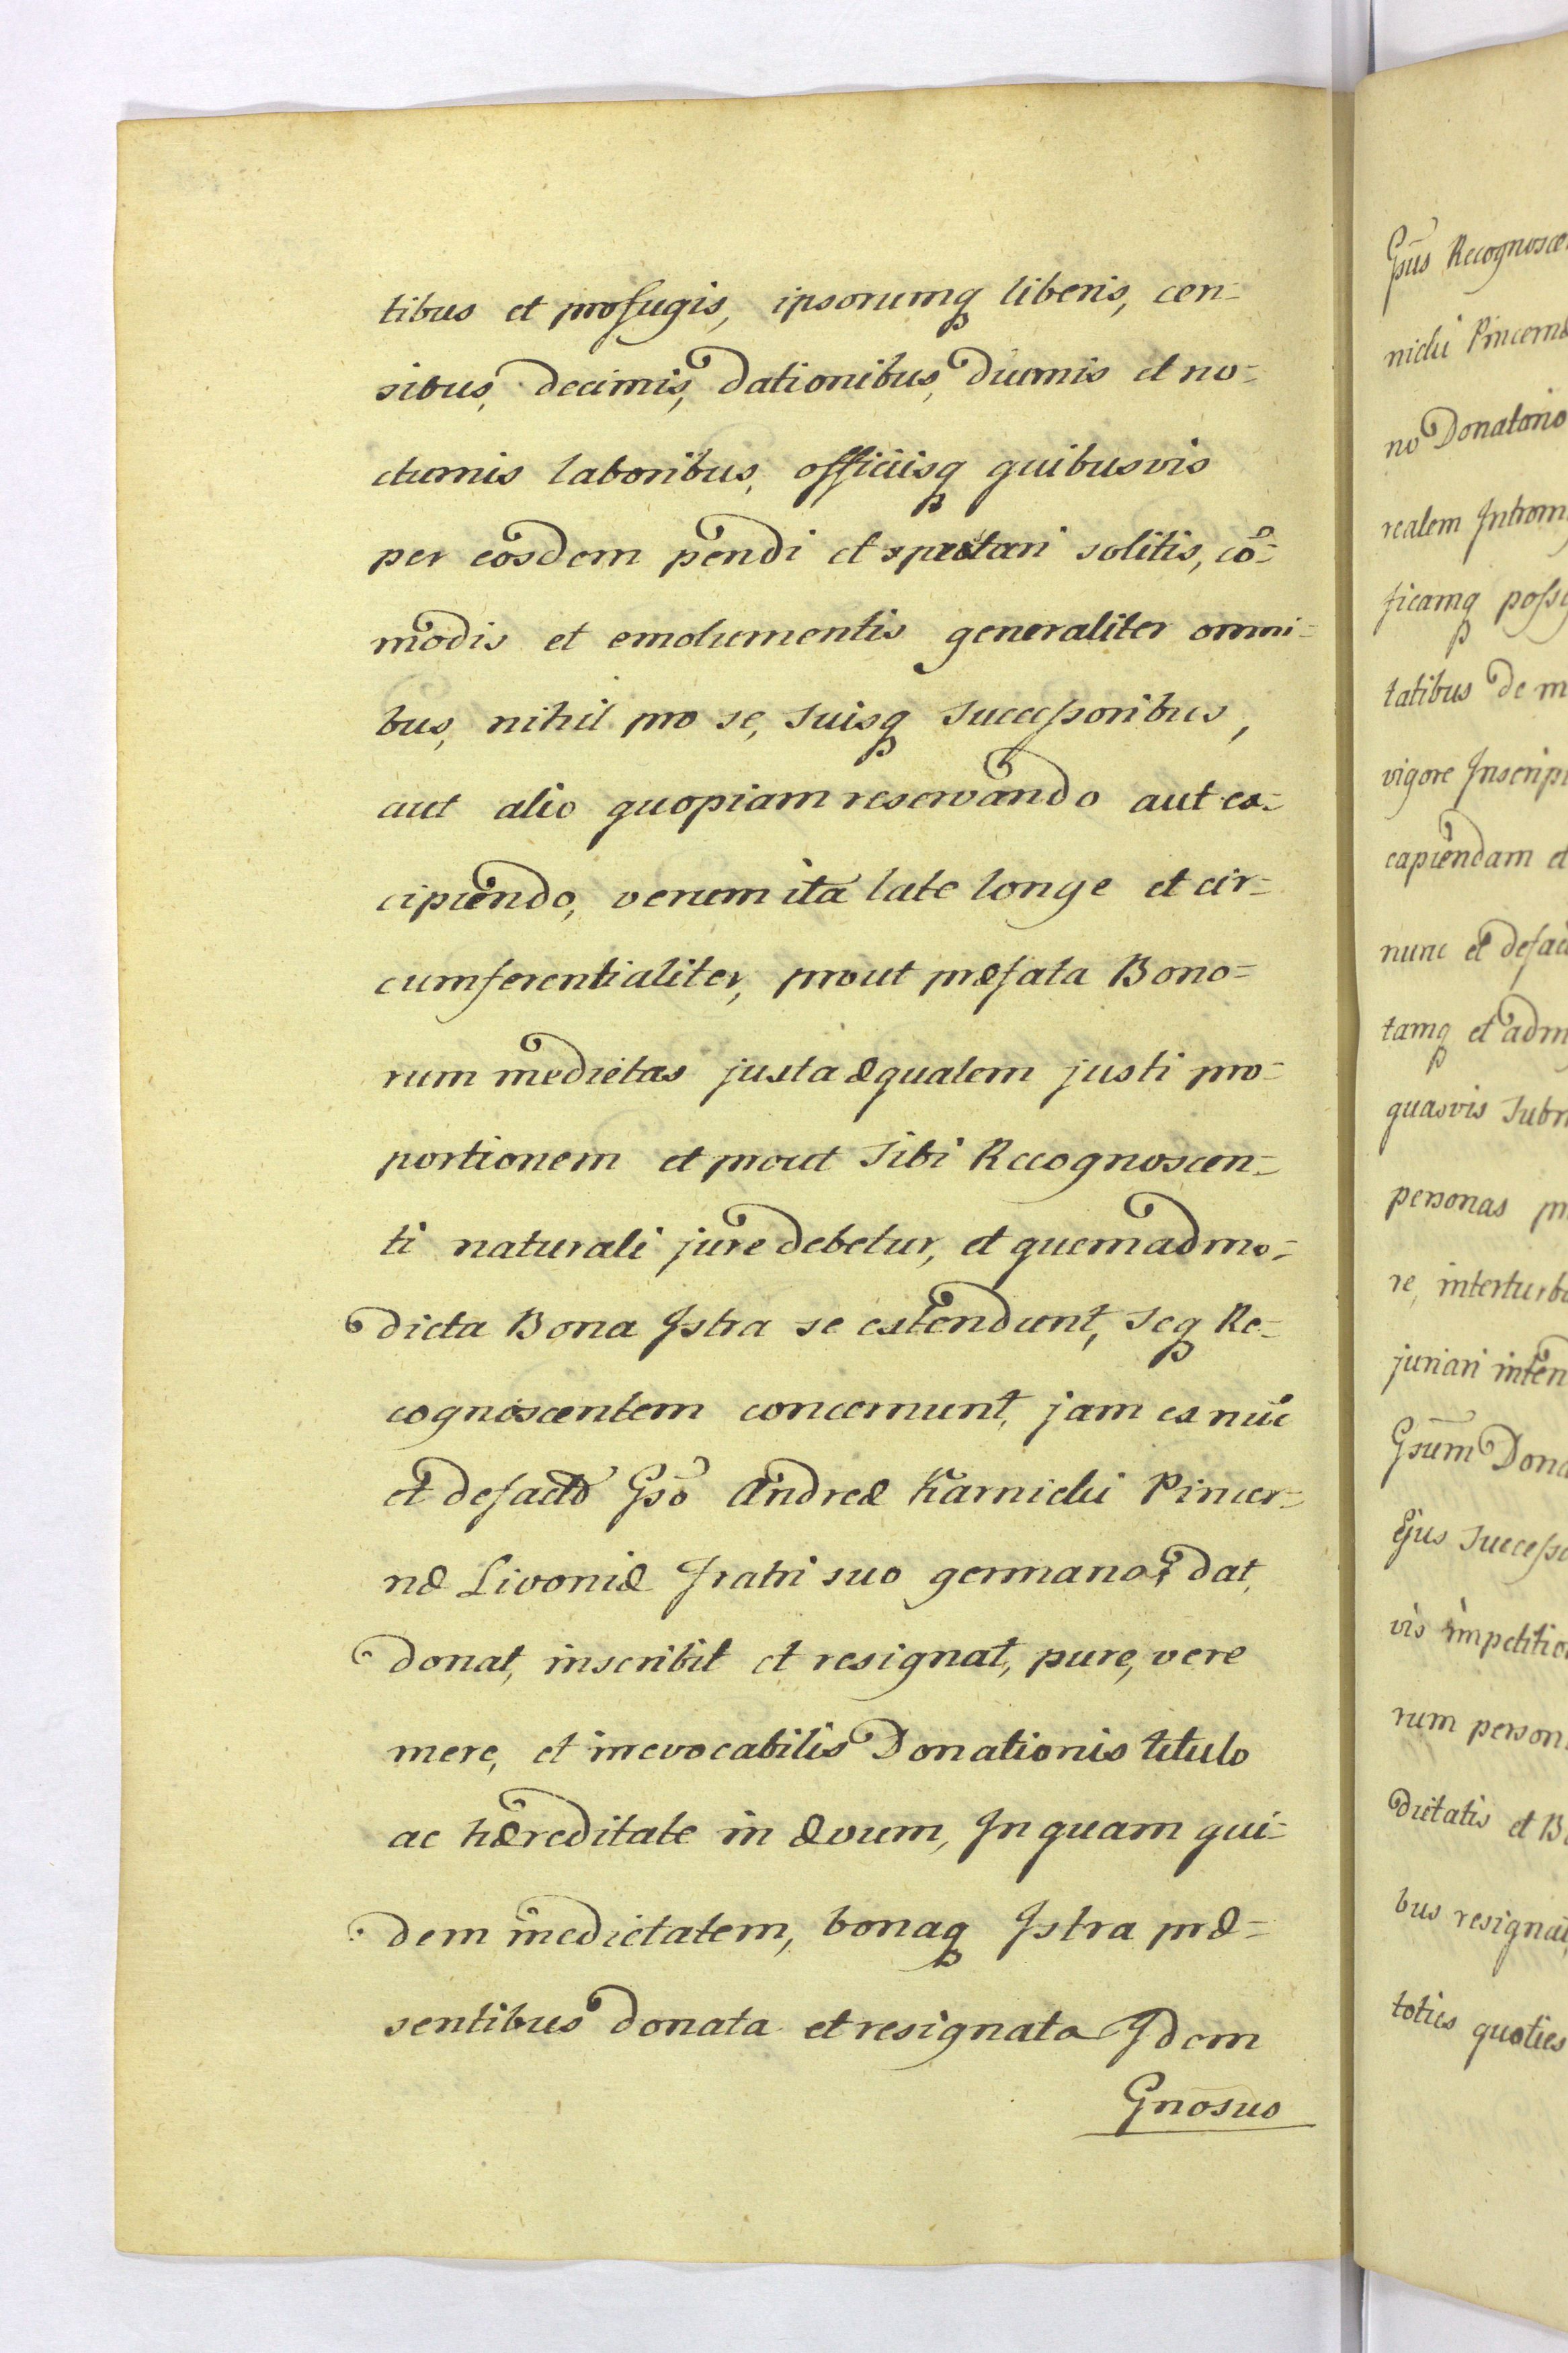 tibus et profugis, ipsorumq liberis, cen=
sibus, decimis, dationibus, diurnis et no=
cturnis laboribus, officiisq quibusvis
per eosdem pendi et spectari solitis, cõ=
modis et emolumentis generaliter omni=
bus, nihil pro se, suisq successoribus,
aut alio quopiam reservando aut ex=
cipiendo, verum ita late longe et cir=
cumferentialiter, prout præfata Bono=
rum medietas juxta æqualem justi pro=
portionem et prout sibi Recognoscen=
ti naturali jure debetur, et quemadmo=
dicta Bona Istra se extendunt, seq Re=
cognoscentem concernunt, jam ex nũc
et defacto Gsõ Andreæ Karnicki Pincer=
næ Livoniæ Fratri suo germano, dat,
donat, inscribit et resignat, pure, vere
mere, et irrevocabilis Donationis titulo
ac hæreditate in ævum, In quam qui=
dem medietatem, bonaq Istra præ=
sentibus donata et resignata Idem
Gnõsus
Gsũs Recognosce
nicki Pincernæ
no Donatario
realem Introm
ficamq poss
tatibus de m
vigore Inscrip
capiendam et
nunc et defac
tamq et adm
quasvis Subm
personas p
re, interturb
juriari inten
Gsũm Dona
Ejus Successo
vis impetitio
rum person
dietatis et B
bus resigna
toties quoties